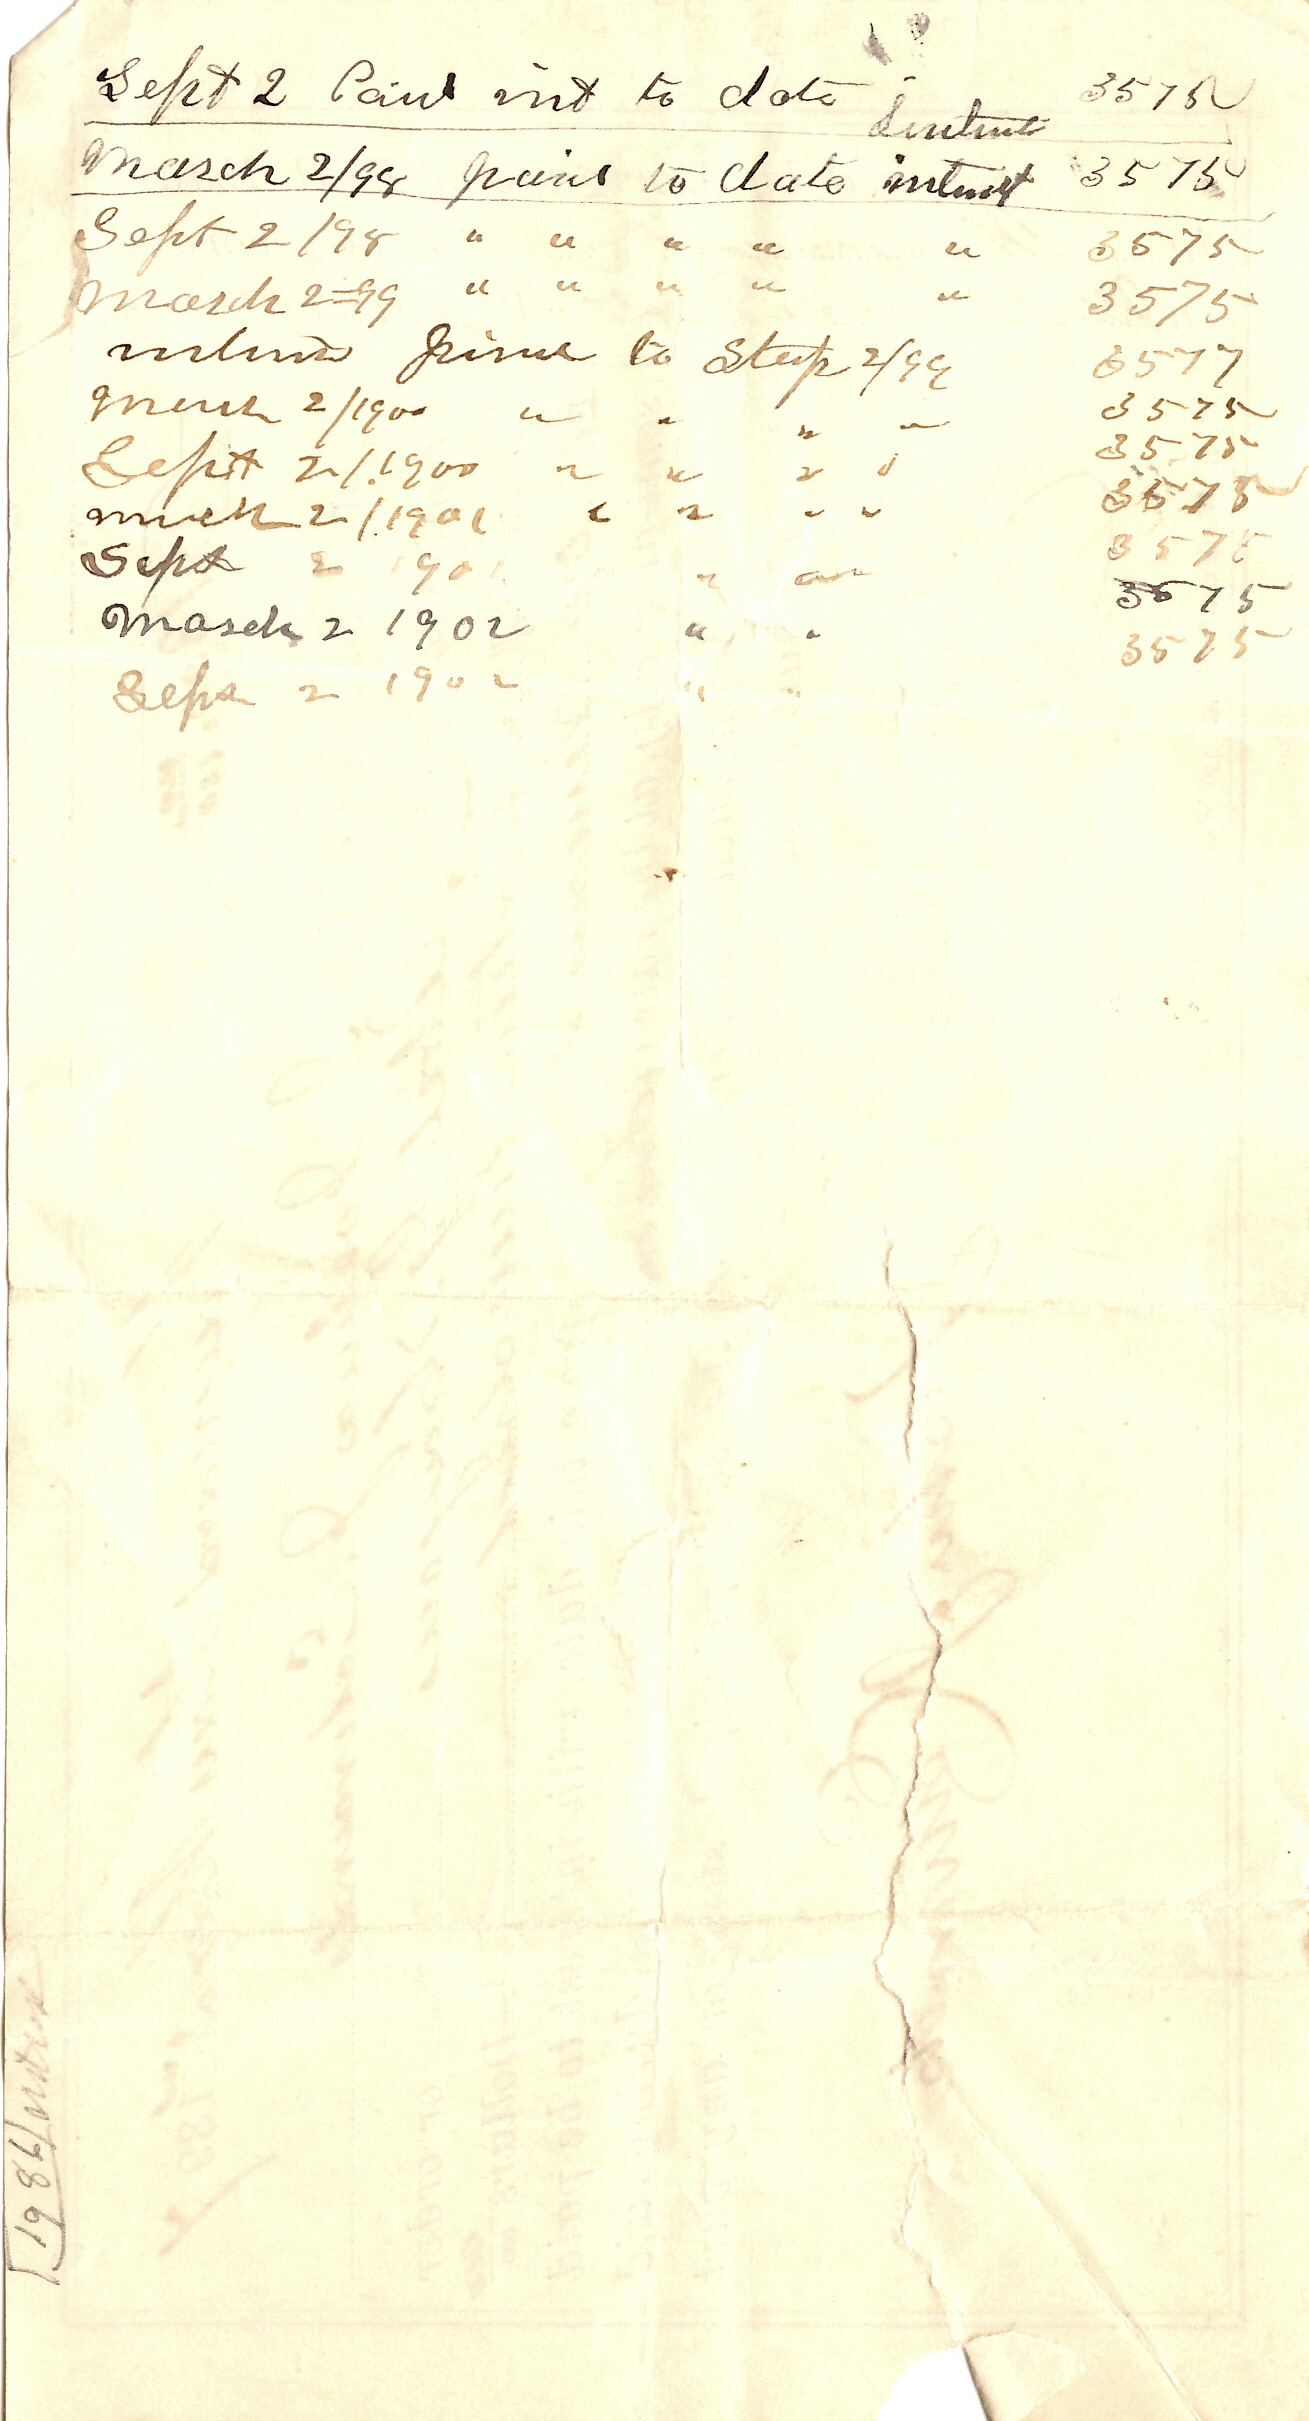 Sept 2 Paid int to date 3575
March 2/98 paid to date intrest 3575
Sept 2/98 " " " " " 3575
March 2=99 " " " " " 3575
to Step 2/99 3577
2/1900 " " " " 3575
Sept 2/1900 " " " 3575
march 2/1901 " " " " 3575
Sept 2 1901 " " 3575
March 2 1902 " " 3575
Sept 2 1902 " " 3575